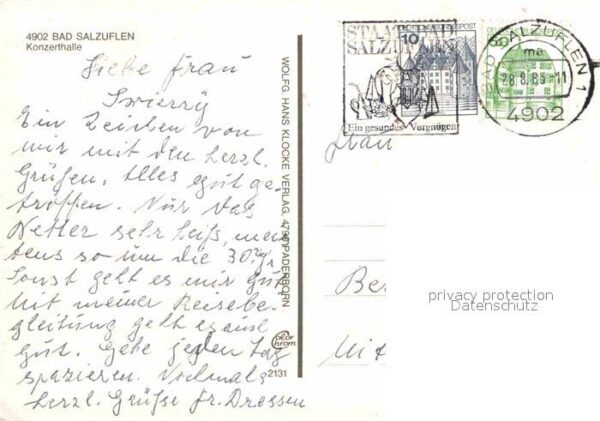 4902 BAD SALZUFLEN
Konzerthalle
Liebe Frau
Ein Zeichen von
mir mit den herzl.
Grüßen. Alles gut ge-
troffen. Nur das
Wetter sehr heiß, meis
tens so um die 30°
Sonst geht es mir gut
Mit meiner Reisebe-
gleitung geht es auch
gut. Gehe jeden Tag
spazieren. Vielmals
herzl. Grüße Fr. Dressen
WOLFG. HANS KLOCKE VERLAG, 4790 PADERBORN
Color chrom
2131
STAATSBAD
SALZUFLEN
Ein gesundes Vergnügen
10
BAD SALZUFLEN 1
ma
28.8.85-11
4902
Frau
Be
Mit
privacy protection
Datenschutz